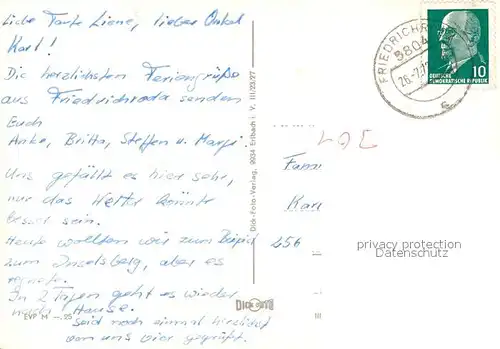 Liebe Tante Liene, lieber Onkel
Karl!
Die herzlichsten Feriengrüße
aus Friedrichroda senden
Euch
Anke, Britta, Steffen u.
Uns gefällt es hier sehr,
nur das Wetter könnte
besser sein.
Heute wollten wir zum Beispiel
zum Inselsberg, aber es
regnete.
In 2 Tagen geht es wieder
nach Hause.
Seid noch einmal herzlichst
von uns vier gegrüßt.
EVP M -,25
DICK FOTO
Dick-Foto-Verlag, 9034 Erlbach i. V. III/23/27
FRIEDRICHR
5804
10
DEUTSCHE
DEMOKRATISCHE REPUBLIK
Fam
Karl
256
privacy protection
Datenschutz